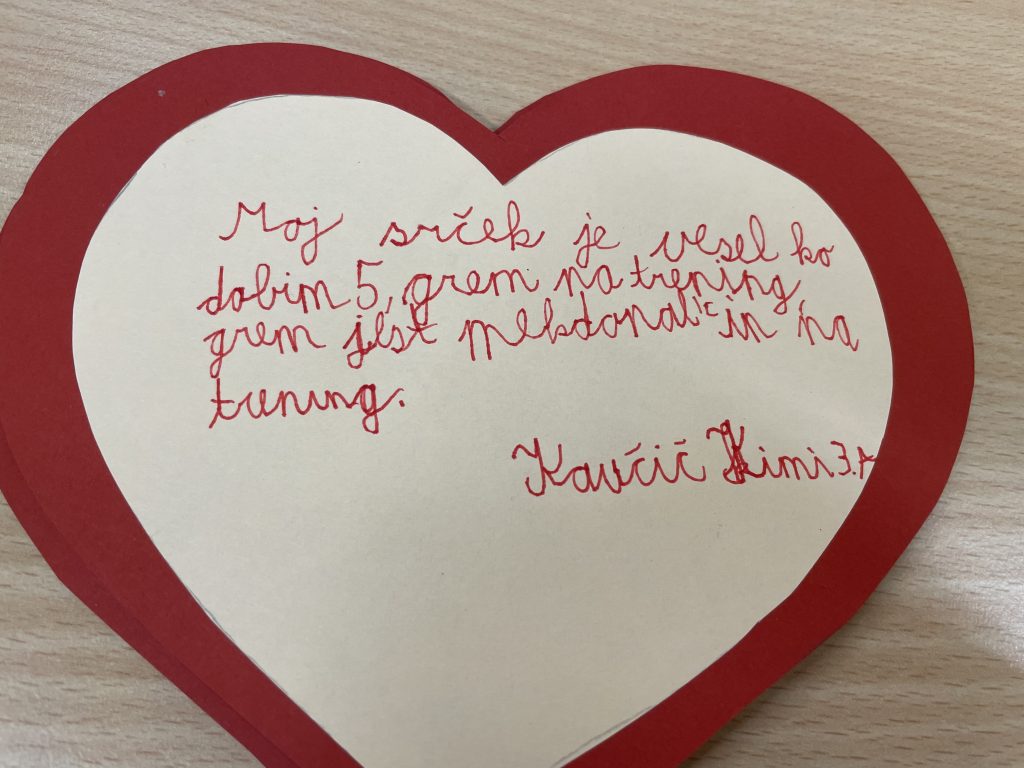 Moj srček je vesel ko
dobim 5, grem na trening,
grem jest mekdonalc in na
trening.
Kavčič Kimi 3.A